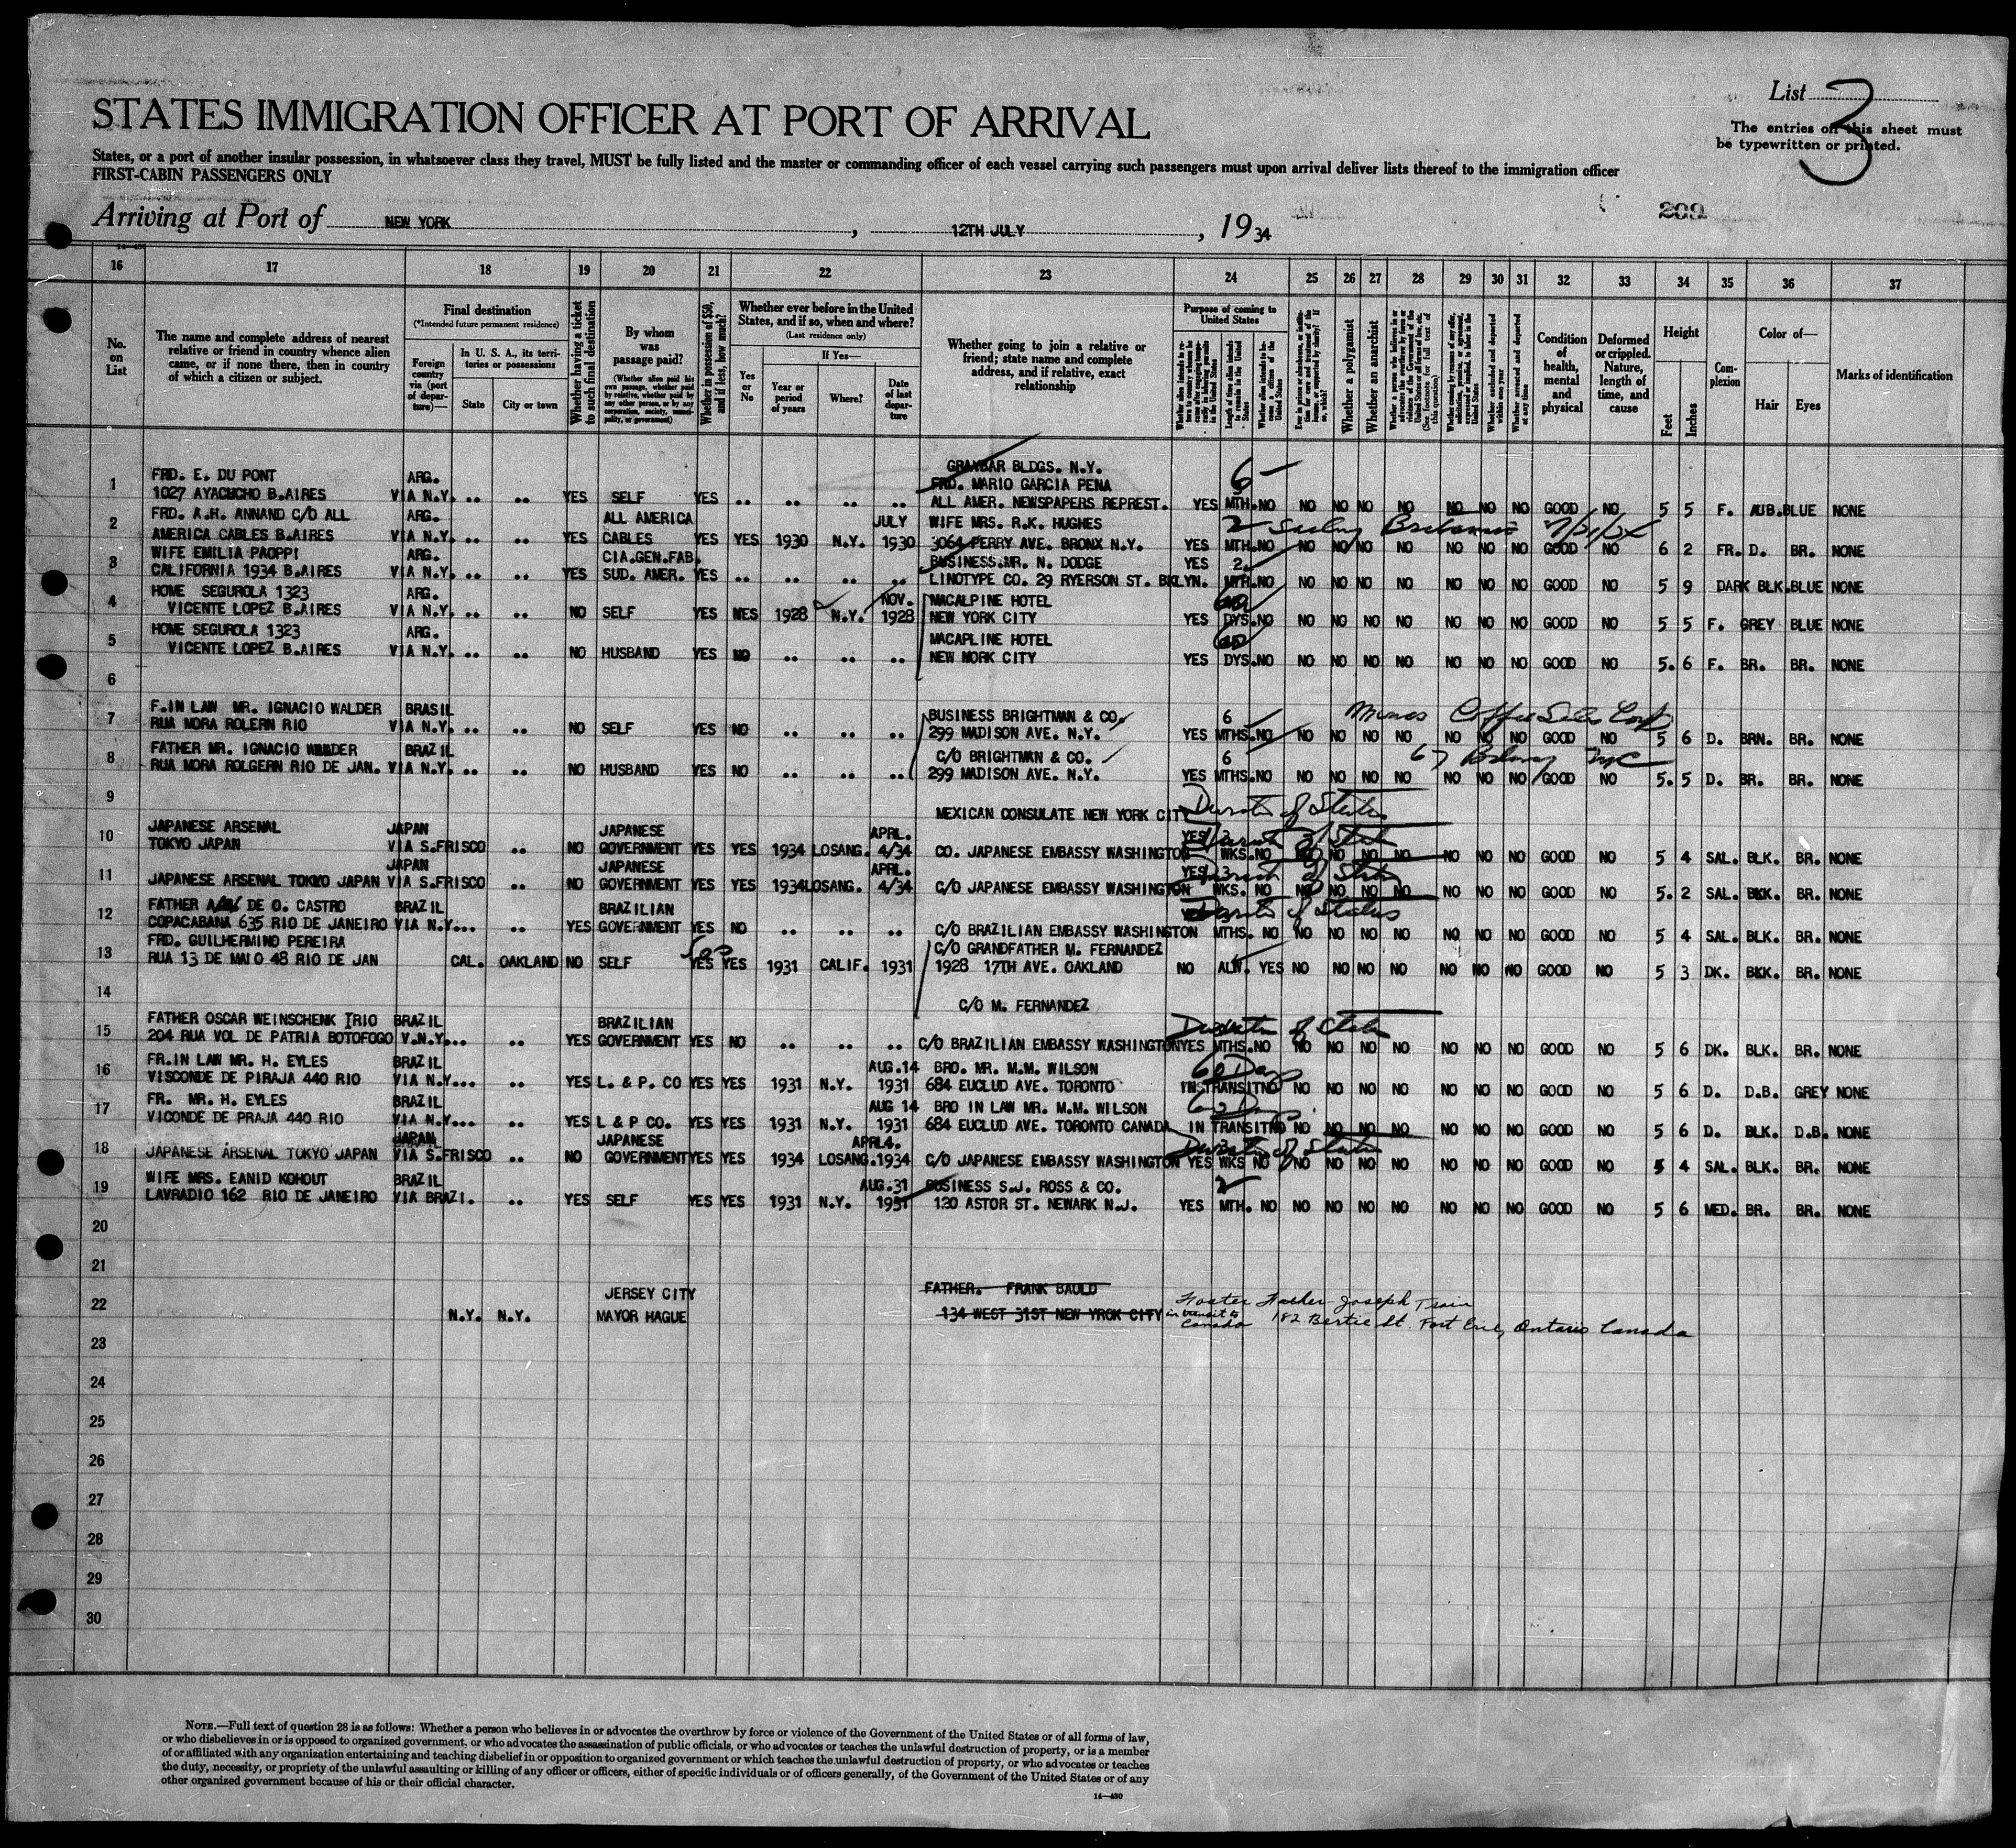 List 3
STATES IMMIGRATION OFFICER AT PORT OF ARRIVAL
The entries on this sheet must
be typewritten or printed.
States, or a port of another insular possession, in whatsoever class they travel, MUST be fully listed and the master or commanding officer of each vessel carrying such passengers must upon arrival deliver lists thereof to the immigration officer
FIRST-CABIN PASSENGERS ONLY
209
Arriving at Port of NEW YORK, 12TH JULY, 1934
16 17 18 19 20 21 22 23 24 25 26 27 28 29 30 31 32 33 34 35 36 37
No. on List
The name and complete address of nearest relative or friend in country whence alien came, or if none there, then in country of which a citizen or subject.
Final destination
(*Intended future permanent residence)
Foreign country via (port of departure)—
In U. S. A., its territories or possessions
State
City or town
Whether having a ticket to such final destination
By whom was passage paid?
(Whether alien paid his own passage, whether paid by relative, whether paid by any other person, or by any corporation, society, municipality, or government)
Whether in possession of $50, and if less, how much?
Whether ever before in the United States, and if so, when and where?
(Last residence only)
Yes or No
If Yes—
Year or period of years
Where?
Date of last departure
Whether going to join a relative or friend; state name and complete address, and if relative, exact relationship
Purpose of coming to United States
Whether a polygamist
Whether an anarchist
Condition of health, mental and physical
Deformed or crippled. Nature, length of time, and cause
Height
Feet
Inches
Complexion
Color of—
Hair
Eyes
Marks of identification
GRAYBAR BLDGS. N.Y.
FRD. E. DU PONT ARG. FRD. MARIO GARCIA PENA 6
1 1027 AYACUCHO B.AIRES VIA N.Y. .. .. YES SELF YES .. .. .. .. ALL AMER. NEWSPAPERS REPREST. YES MTH. NO NO NO NO NO NO NO NO GOOD NO 5 5 F. AUB. BLUE NONE
FRD. A.H. ANNAND C/O ALL ARG. ALL AMERICA JULY WIFE MRS. R.K. HUGHES 2
2 AMERICA CABLES B.AIRES VIA N.Y. .. .. YES CABLES YES YES 1930 N.Y. 1930 3064 PERRY AVE. BRONX N.Y. YES MTH. NO NO NO NO NO NO NO NO GOOD NO 6 2 FR. D. BR. NONE
WIFE EMILIA PAOPPI ARG. CIA.GEN.FAB. BUSINESS MR. N. DODGE YES 2
3 CALIFORNIA 1934 B.AIRES VIA N.Y. .. .. YES SUD. AMER. YES .. .. .. .. LINOTYPE CO. 29 RYERSON ST. BKLYN. MTH. NO NO NO NO NO NO NO NO GOOD NO 5 9 DARK BLK. BLUE NONE
HOME SEGUROLA 1323 ARG. NOV. MACALPINE HOTEL 60
4 VICENTE LOPEZ B.AIRES VIA N.Y. .. .. NO SELF YES YES 1928 N.Y. 1928 NEW YORK CITY YES DYS. NO NO NO NO NO NO NO NO GOOD NO 5 5 F. GREY BLUE NONE
HOME SEGUROLA 1323 ARG. MACAPLINE HOTEL 60
5 VICENTE LOPEZ B.AIRES VIA N.Y. .. .. NO HUSBAND YES NO .. .. .. NEW YORK CITY YES DYS. NO NO NO NO NO NO NO NO GOOD NO 5. 6 F. BR. BR. NONE
6
F.IN LAW MR. IGNACIO WALDER BRASIL BUSINESS BRIGHTMAN & CO. 6 Coffee Sales Corp
7 RUA MORA ROLERN RIO VIA N.Y. .. .. NO SELF YES NO .. .. .. 299 MADISON AVE. N.Y. YES MTHS. NO NO NO NO NO NO NO NO GOOD NO 5 6 D. BRN. BR. NONE
FATHER MR. IGNACIO WALDER BRAZIL C/O BRIGHTMAN & CO. 6 67 NYC
8 RUA MORA ROLGERN RIO DE JAN. VIA N.Y. .. .. NO HUSBAND YES NO .. .. .. 299 MADISON AVE. N.Y. YES MTHS. NO NO NO NO NO NO NO NO GOOD NO 5. 5 D. BR. BR. NONE
9 MEXICAN CONSULATE NEW YORK CITY Duration of Status
JAPANESE ARSENAL JAPAN JAPANESE APRL. YES 3 Duration of Status
10 TOKYO JAPAN VIA S.FRISCO .. NO GOVERNMENT YES YES 1934 LOSANG. 4/34 CO. JAPANESE EMBASSY WASHINGTON WKS. NO NO NO NO NO NO NO NO GOOD NO 5 4 SAL. BLK. BR. NONE
JAPAN JAPANESE APRL. YES 3 Duration of Status
11 JAPANESE ARSENAL TOKYO JAPAN VIA S.FRISCO .. NO GOVERNMENT YES YES 1934 LOSANG. 4/34 C/O JAPANESE EMBASSY WASHINGTON WKS. NO NO NO NO NO NO NO NO GOOD NO 5. 2 SAL. BKK. BR. NONE
FATHER DE O. CASTRO BRAZIL BRAZILIAN Duration of Status
12 COPACABANA 635 RIO DE JANEIRO VIA N.Y... .. YES GOVERNMENT YES NO .. .. .. C/O BRAZILIAN EMBASSY WASHINGTON MTHS. NO NO NO NO NO NO NO NO GOOD NO 5 4 SAL. BLK. BR. NONE
FRD. GUILHERMINO PEREIRA C/O GRANDFATHER M. FERNANDEZ
13 RUA 13 DE MAIO 48 RIO DE JAN CAL. OAKLAND NO SELF YES YES 1931 CALIF. 1931 1928 17TH AVE. OAKLAND NO ALW. YES NO NO NO NO NO NO NO GOOD NO 5 3 DK. BKK. BR. NONE
14 C/O M. FERNANDEZ
FATHER OSCAR WEINSCHENK TRIO BRAZIL BRAZILIAN Duration of Status
15 204 RUA VOL DE PATRIA BOTOFOGO V.N.Y... .. YES GOVERNMENT YES NO .. .. .. C/O BRAZILIAN EMBASSY WASHINGTON YES MTHS. NO NO NO NO NO NO NO NO GOOD NO 5 6 DK. BLK. BR. NONE
FR.IN LAW MR. H. EYLES BRAZIL AUG.14 BRO. MR. M.M. WILSON 60 Days
16 VISCONDE DE PIRAJA 440 RIO VIA N.Y... .. YES L. & P. CO YES YES 1931 N.Y. 1931 684 EUCLUD AVE. TORONTO IN TRANSIT NO NO NO NO NO NO NO NO GOOD NO 5 6 D. D.B. GREY NONE
FR. MR. H. EYLES BRAZIL AUG 14 BRO IN LAW MR. M.M. WILSON 60 Days
17 VICONDE DE PRAJA 440 RIO VIA N.Y... .. YES L & P CO. YES YES 1931 N.Y. 1931 684 EUCLUD AVE. TORONTO CANADA IN TRANSIT NO NO NO NO NO NO NO NO GOOD NO 5 6 D. BLK. D.B. NONE
JAPAN JAPANESE APRL4. Duration of Status
18 JAPANESE ARSENAL TOKYO JAPAN VIA S.FRISCO .. NO GOVERNMENT YES YES 1934 LOSANG. 1934 C/O JAPANESE EMBASSY WASHINGTON YES WKS NO NO NO NO NO NO NO NO GOOD NO 5 4 SAL. BLK. BR. NONE
WIFE MRS. EANID KOHOUT BRAZIL AUG.31 BUSINESS S.J. ROSS & CO. 2
19 LAVRADIO 162 RIO DE JANEIRO VIA BRAZI. .. YES SELF YES YES 1931 N.Y. 1931 120 ASTOR ST. NEWARK N.J. YES MTH. NO NO NO NO NO NO NO NO GOOD NO 5 6 MED. BR. BR. NONE
20
21
JERSEY CITY FATHER. FRANK BAULD Foster Father Joseph Train
22 N.Y. N.Y. MAYOR HAGUE 134 WEST 31ST NEW YROK CITY in transit to Canada 182 Bertie St. Fort Erie, Ontario Canada
23
24
25
26
27
28
29
30
NOTE.—Full text of question 28 is as follows: Whether a person who believes in or advocates the overthrow by force or violence of the Government of the United States or of all forms of law,
or who disbelieves in or is opposed to organized government, or who advocates the assassination of public officials, or who advocates or teaches the unlawful destruction of property, or is a member
of or affiliated with any organization entertaining and teaching disbelief in or opposition to organized government or which teaches the unlawful destruction of property, or who advocates or teaches
the duty, necessity, or propriety of the unlawful assaulting or killing of any officer or officers, either of specific individuals or of officers generally, of the Government of the United States or of any
other organized government because of his or their official character.
14—430